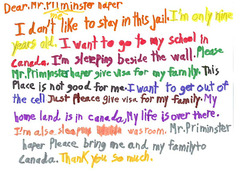 Dear.Mr.Priminster haper
I don't like to stay in this jail. I'm only nine
years old. I want to go to my school in
canada. I'm sleeping beside the wall. Please
Mr.Priminster haper give visa for my family. This
Place is not good for me. I want to get out of
the cell Just Pleace give visa for my family. My
home land is in canada, My life is over there.
I'm also sleeping was room. Mr.Priminster
haper Pleace bring me and my family to
Canada. Thank you so much.